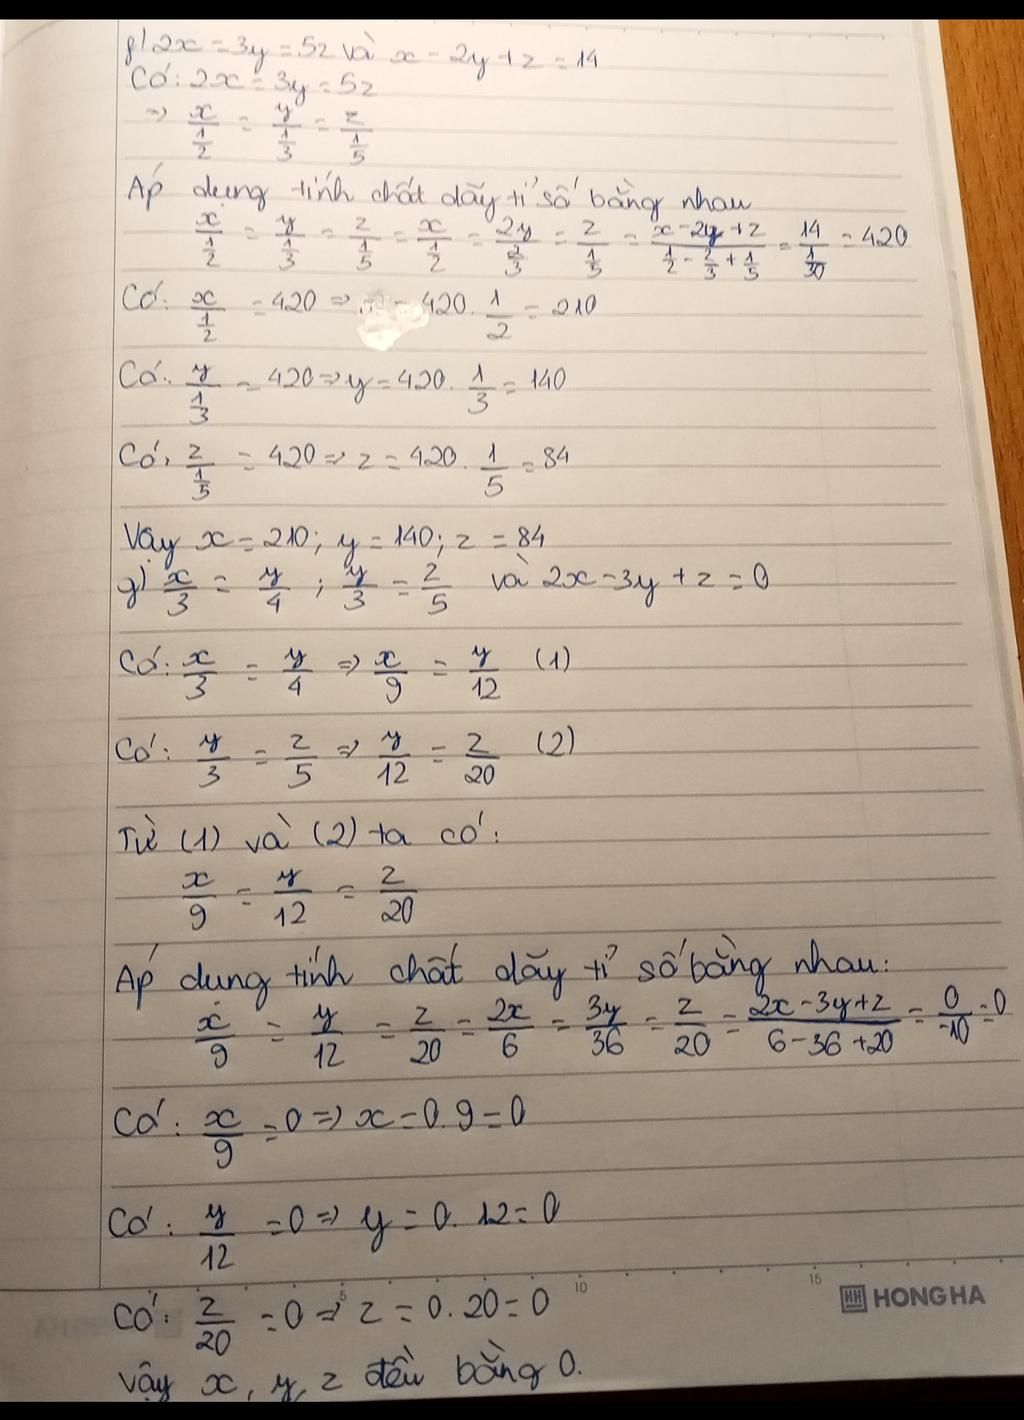 f) 2x = 3y = 5z và x - 2y + z = 14
Có: 2x = 3y = 5z
=> x/(1/2) = y/(1/3) = z/(1/5)
Áp dụng tính chất dãy tỉ số bằng nhau
x/(1/2) = y/(1/3) = z/(1/5) = x/(1/2) = 2y/(2/3) = z/(1/5) = (x - 2y + z)/(1/2 - 2/3 + 1/5) = 14/(1/30) = 420
Có: x/(1/2) = 420 => = 420. 1/2 = 210
Có: y/(1/3) = 420 => y = 420. 1/3 = 140
Có: z/(1/5) = 420 => z = 420. 1/5 = 84
Vậy x = 210; y = 140; z = 84
g) x/3 = y/4 ; y/3 = z/5 và 2x - 3y + z = 0
Có: x/3 = y/4 => x/9 = y/12 (1)
Có: y/3 = z/5 => y/12 = z/20 (2)
Từ (1) và (2) ta có:
x/9 = y/12 = z/20
Áp dụng tính chất dãy tỉ số bằng nhau:
x/9 = y/12 = z/20 = 2x/6 = 3y/36 = z/20 = (2x - 3y + z)/(6 - 36 + 20) = 0/-10 = 0
Có: x/9 = 0 => x = 0. 9 = 0
Có: y/12 = 0 => y = 0. 12 = 0
5 10 15
HONG HA
Có: z/20 = 0 => z = 0. 20 = 0
Vậy x, y, z đều bằng 0.